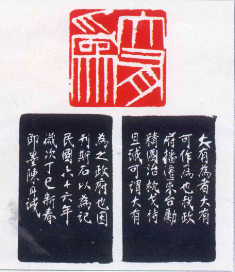 大有為
大有為者大有
可作為也我政
府播遷來台勵
精圖治枕戈待
旦誠可謂大有
為之政府也因
刊斯石以為記
民國六十六年
歲次丁巳新春
即墨陳丹誠